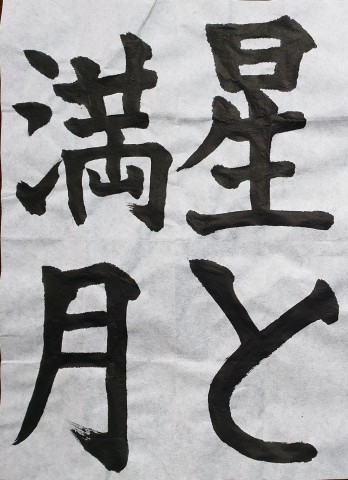 星と
満月